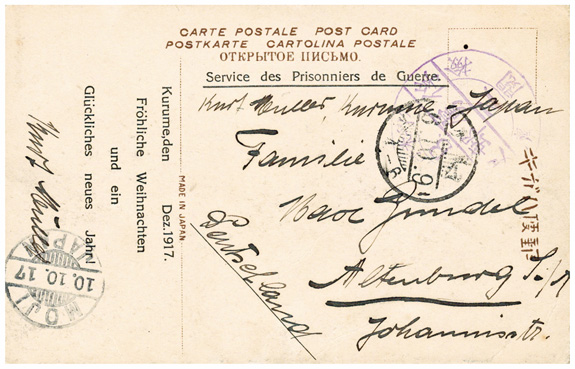 CARTE POSTALE POST CARD
POSTKARTE CARTOLINA POSTALE
ОТКРЫТОЕ ПИСЬМО.
Service des Prisonniers de Guerre.
Kurt Müller, Kurume - Japan
Familie
Max Gundel
Altenburg S./A
Johannisstr.
Deutschland
MADE IN JAPAN
Kurume, den Dez. 1917.
Fröhliche Weihnachten
und ein
Glückliches neues Jahr!
Kurt Müller
MOJI
10.10.17
JAPAN